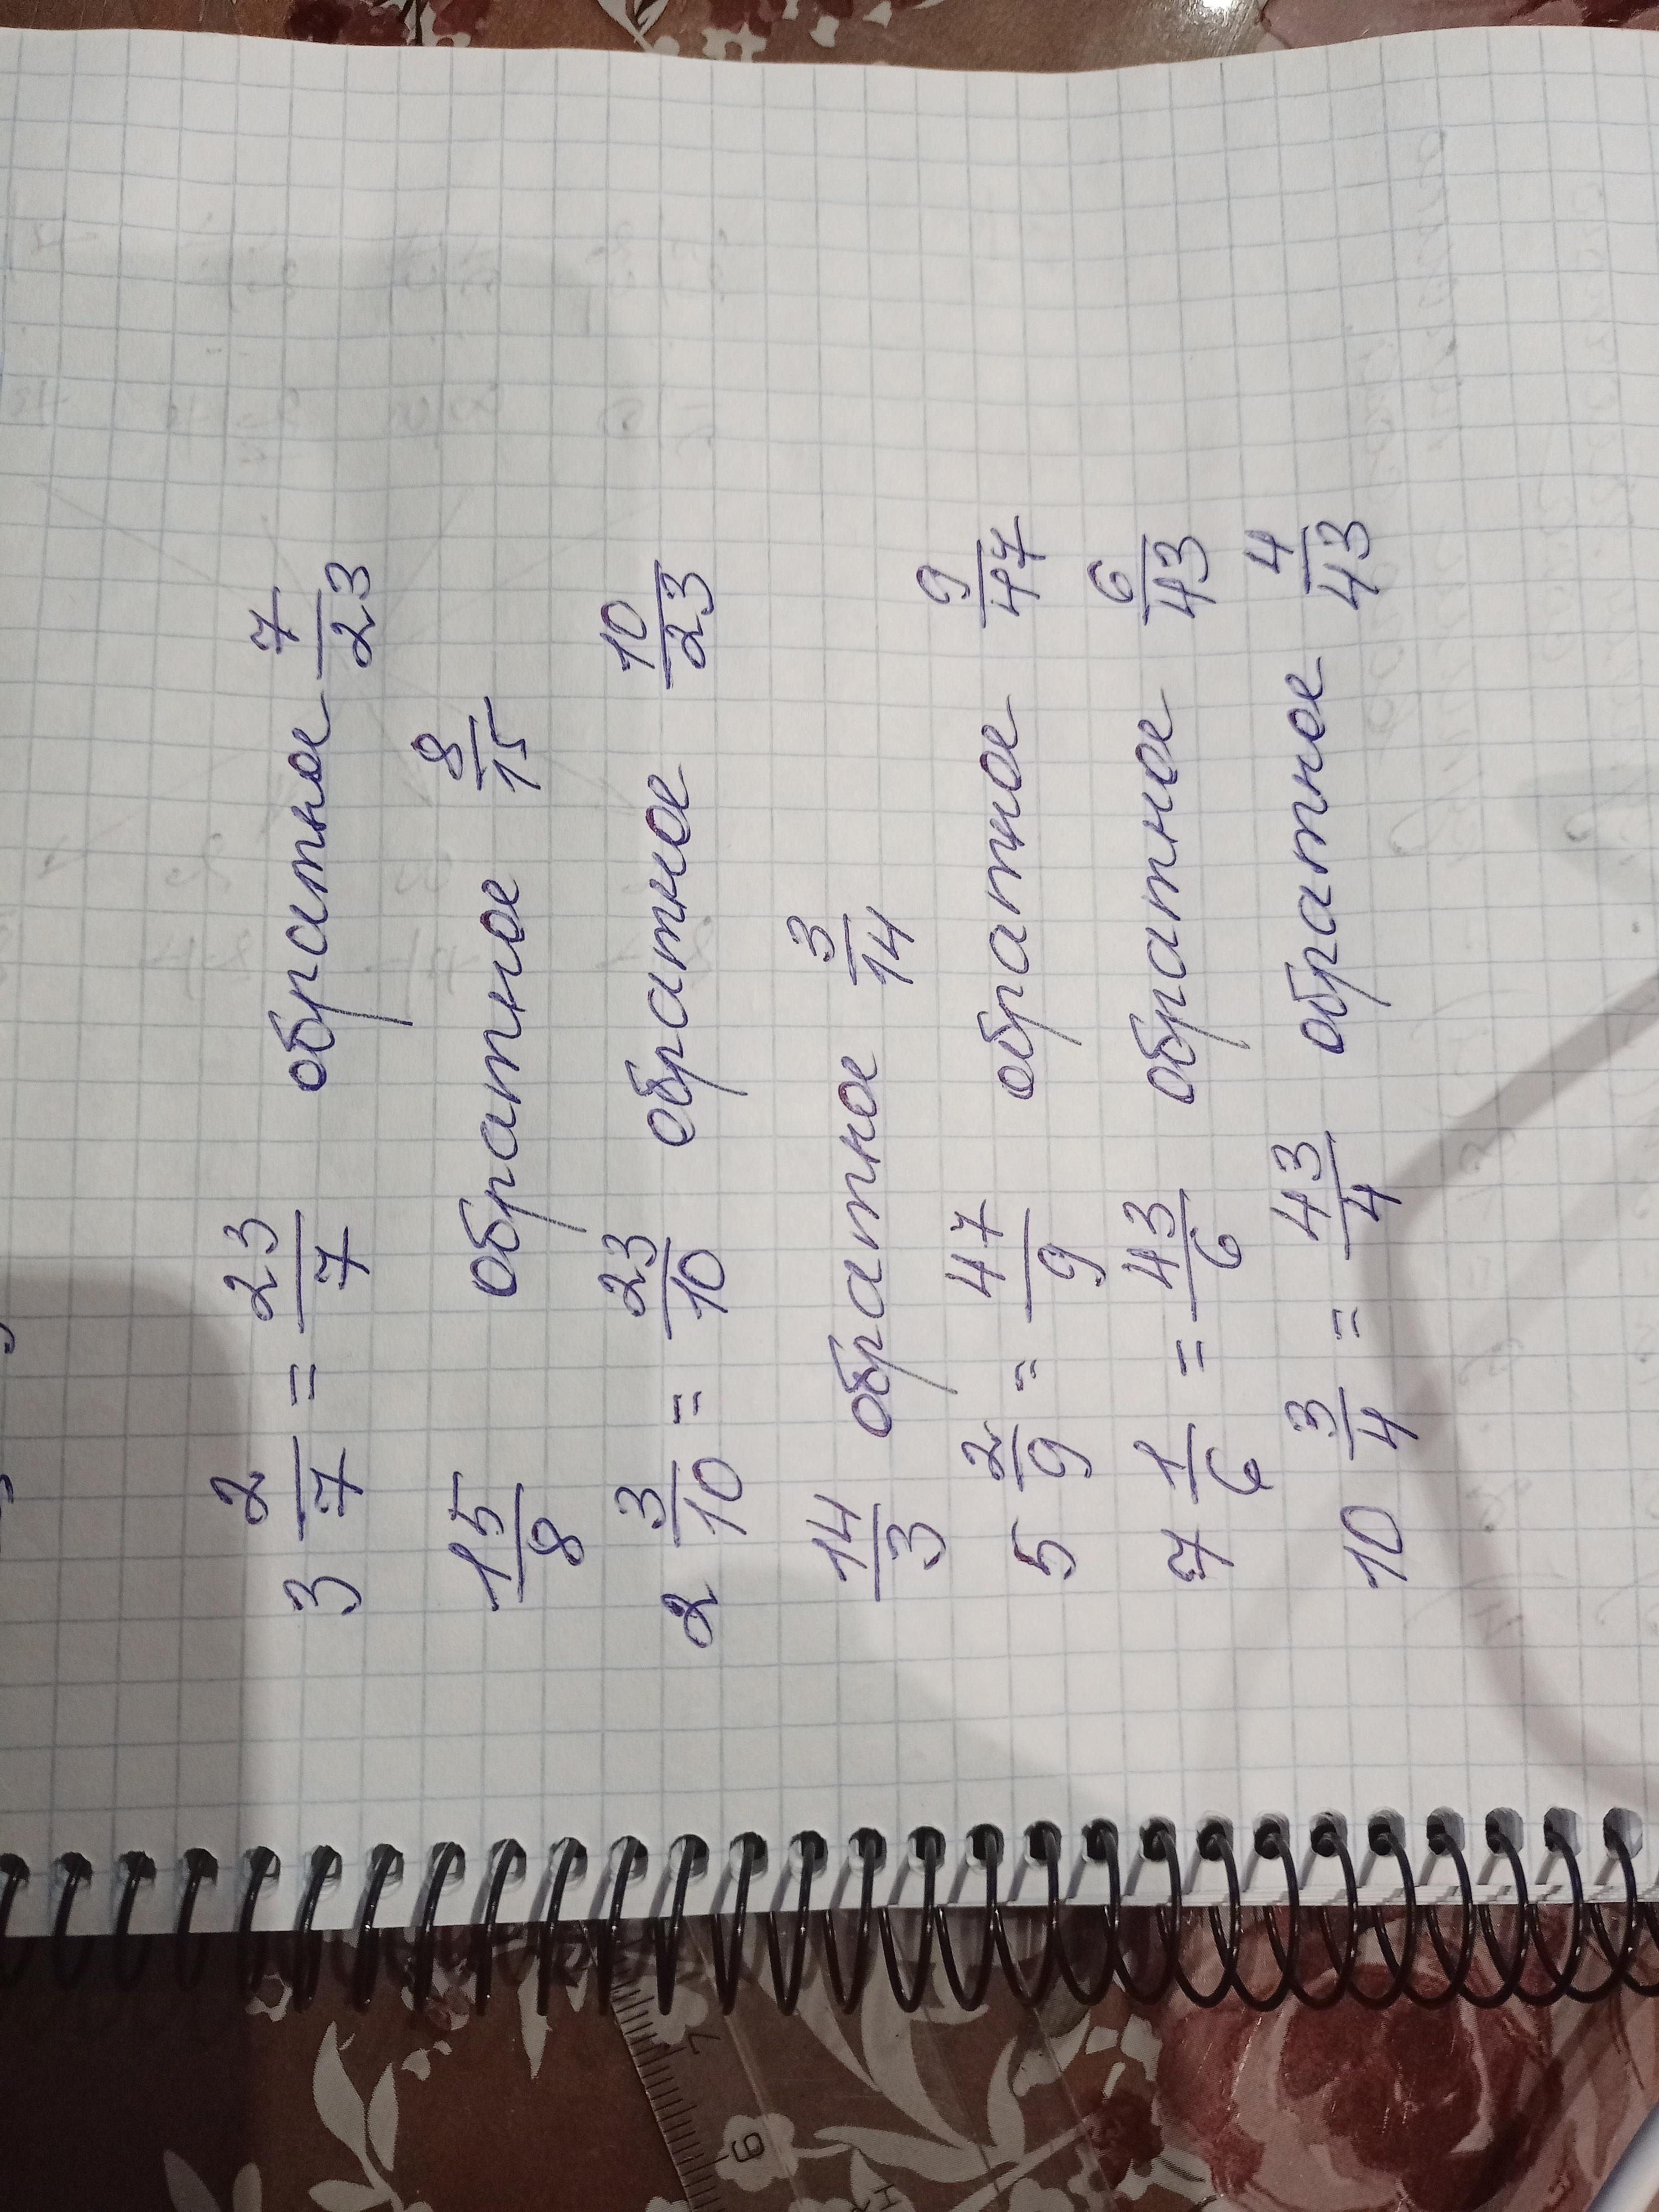 3 2/7 = 23/7 обратное 7/23
15/8 обратное 8/15
2 3/10 = 23/10 обратное 10/23
14/3 обратное 3/14
5 2/9 = 47/9 обратное 9/47
7 1/6 = 43/6 обратное 6/43
10 3/4 = 43/4 обратное 4/43
7
9